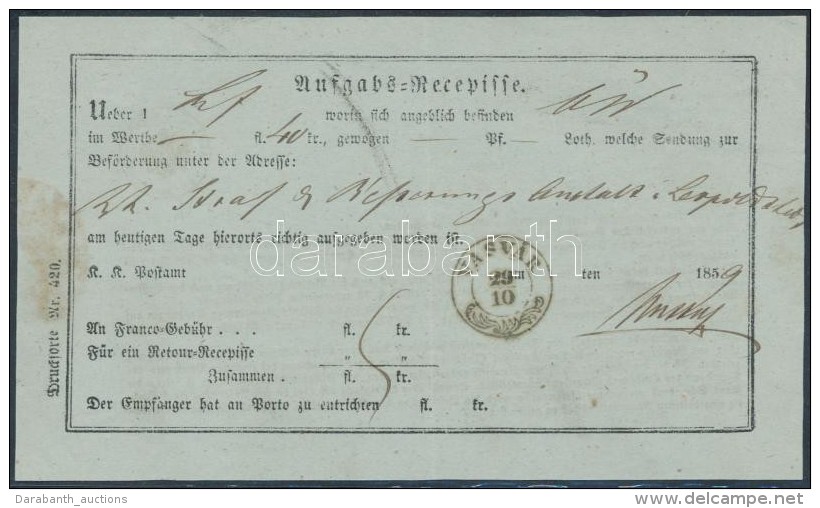 Aufgabs=Recepisse.
Ueber 1 worin sich angeblich befinden
im Werthe — fl. 40 kr., gewogen — Pf. — Loth, welche Sendung zur
Beförderung unter der Adresse:
Straf & Besserungs Anstalt
am heutigen Tage hierorts richtig aufgegeben worden ist.
darabanth
VASVÁR
K. K. Postamt am ten 1859
29
10
An Franco=Gebühr . . . fl. kr.
Für ein Retour=Recepisse " "
Zusammen . fl. kr.
5
Der Empfänger hat an Porto zu entrichten fl. kr.
Drucksorte Nr. 420.
Darabanth_auctions
delcampe.net